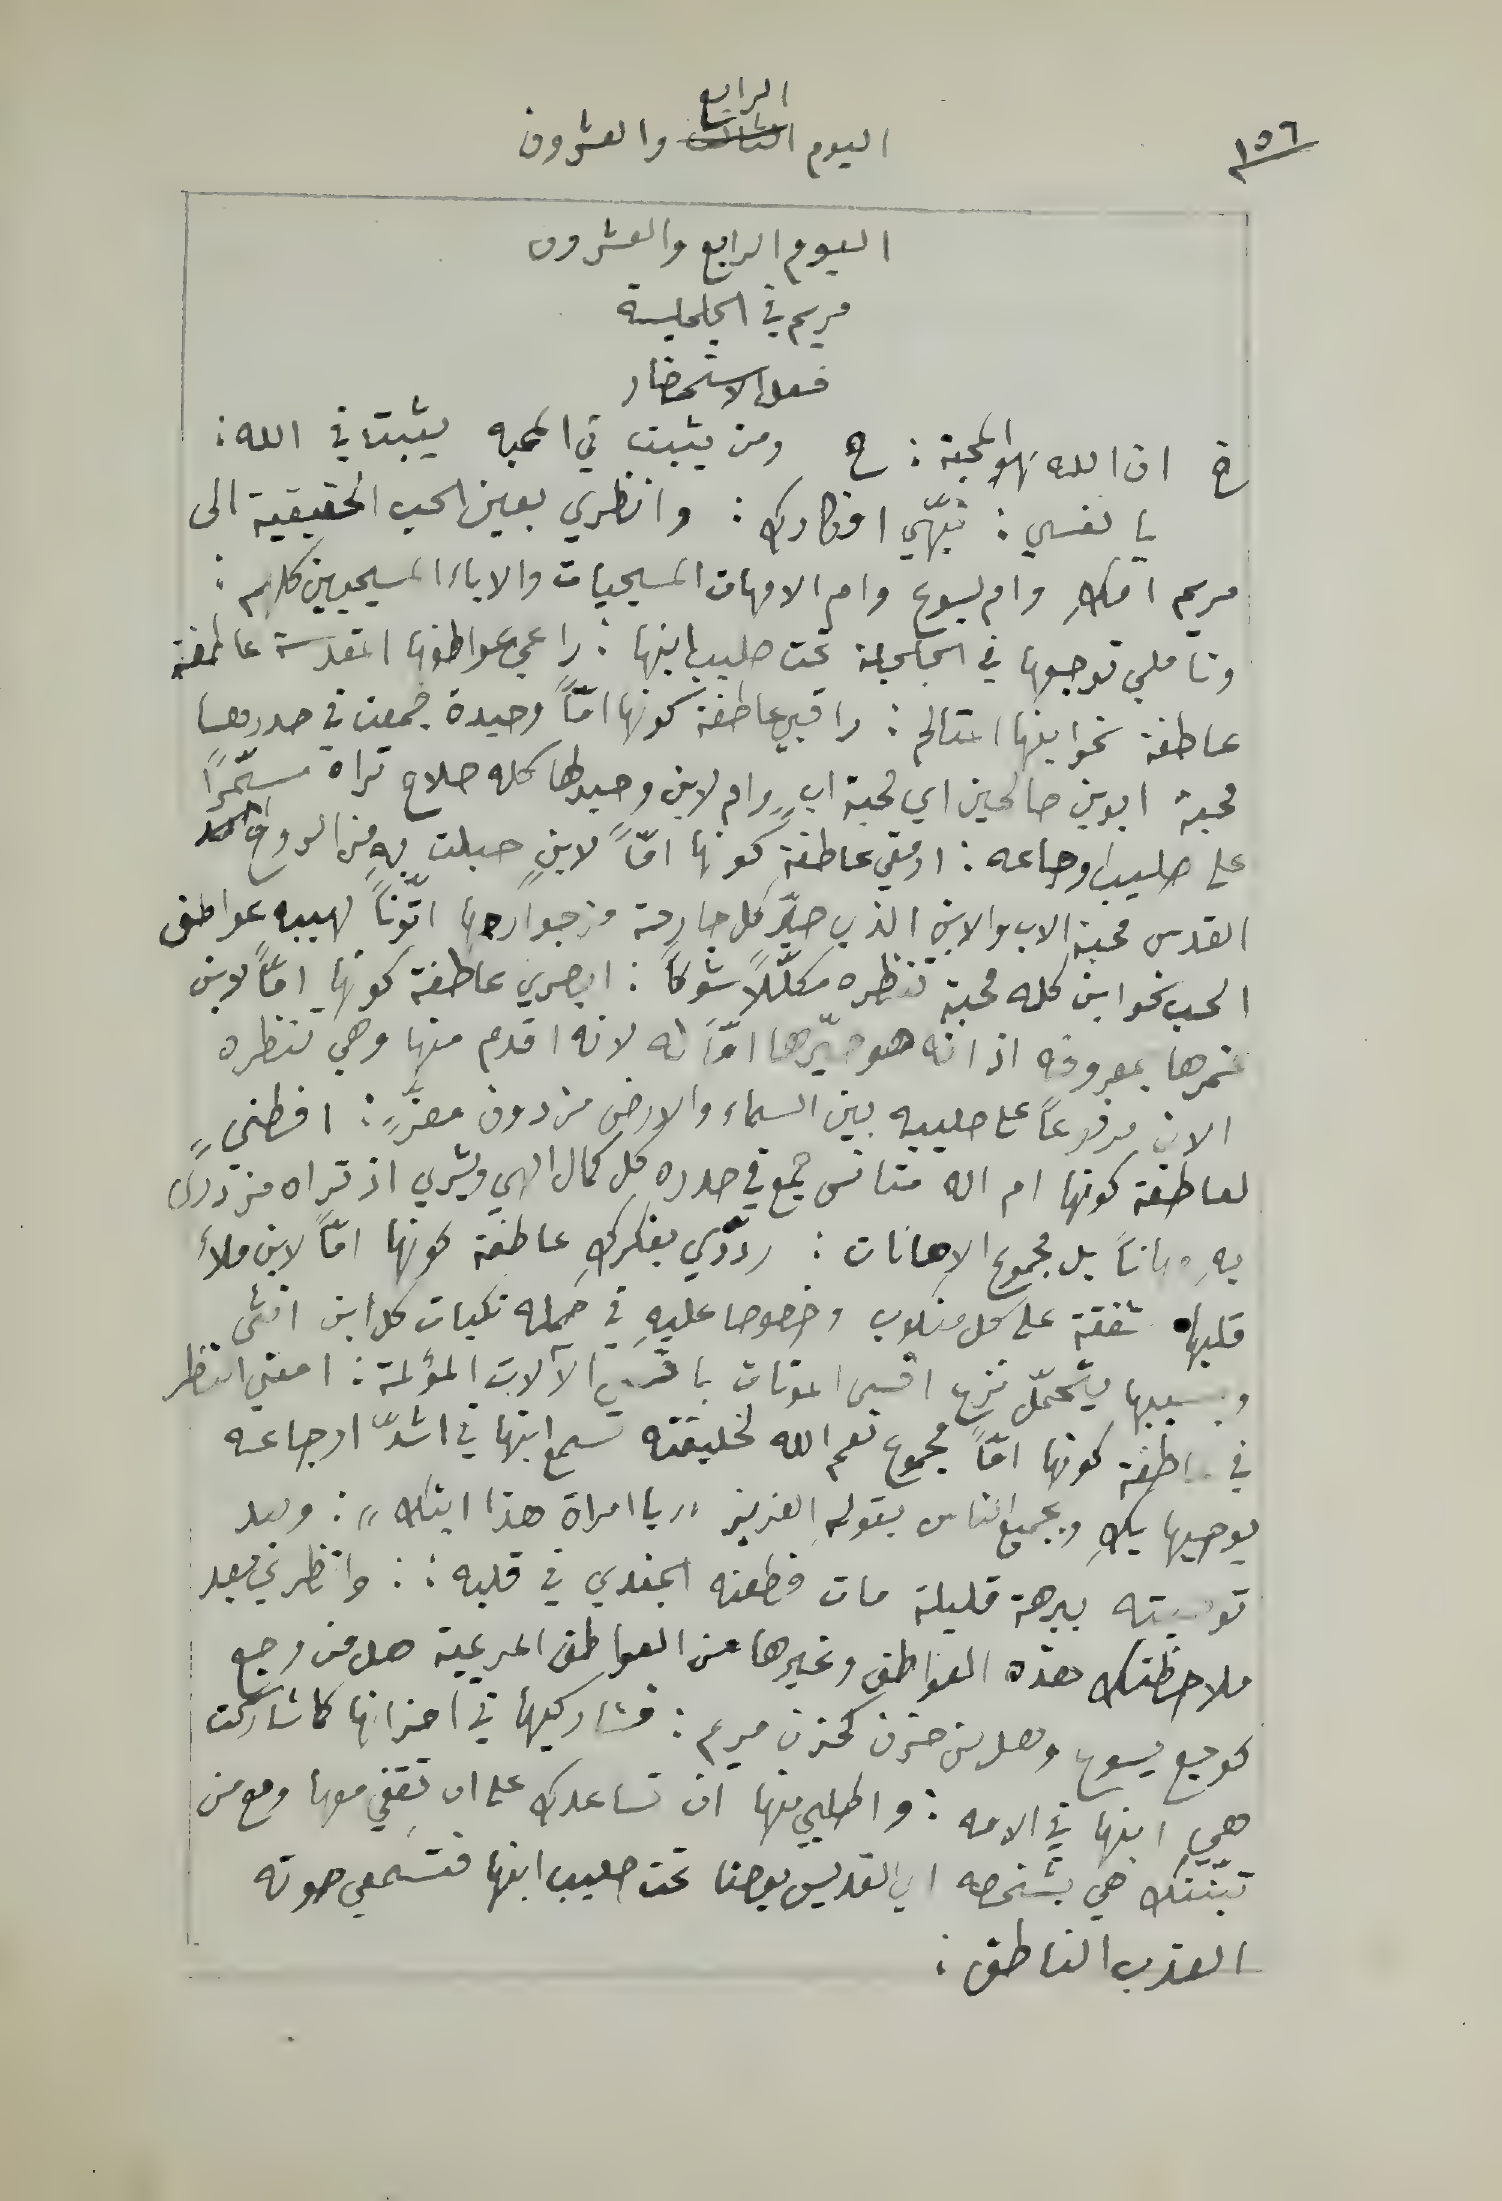 ١٥٦
الرابع
اليوم الثالث والعشرون
اليوم الرابع والعشرون
مريم في الجلجلة
فعل الاستحضار
خ ان الله هو المحبة : ج ومن يثبت في المحبه يثبت في الله :
يا نفسي : نبّهي افكارك : وانظري بعين الحب الحقيقية الى
مريم امكِ وام يسوع وام الامهات المسيحيات والاباء المسيحيين كلهم :
وتاملي توجعها في الجلجلة تحت صليب ابنها : راعي عواطفها المقدسة عاطفة
عاطفة نحو ابنها المتالم : راقبي عاطفة كونها امّاً وحيدة جمعت في صدرها
محبة ابوين صالحين اي محبة ابٍ وام لابن وحيد لها كله صلاح تراه مسمّراً
على صليب اوجاعه : ارمقي عاطفة كونها امّاً لابنٍ حبلت بهِ من الروح
القدس محبة الاب والابن الذي صيّر كل جارحة من جوارحها اتّوناً لهيبه عواطف
الحب نحو ابن كله محبة تنظره مكلّلاً شوكاً : ابصري عاطفة كونها امّاً لابن
غمرها بمعروفه اذ انه هو صيّرها امّاً له لانه اقدم منها وهي تنظره
الان مرفوعاً على صليبه بين السماء والارض من دون معزٍّ : افطني
لعاطفة كونها ام اله متانس جمع في صدره كل كمال الهي وبشري اذ تراه مزدرى
بهِ مهاناً بل مجموع الاهانات : ردّدي بفكركِ عاطفة كونها امّاً لابن ملأ
قلبها شفقة على كل منكوب وخصوصا عليهِ في حمله نكبات كل ابن انثى
وبسببها يتحمّل نزع اقسى الموتات باقسى الآلات المؤلمة : امعني النظر
في عاطفة كونها امّاً مجموع نعم الله لخليقته تسمع ابنها في اشدّ اوجاعه
يوصيها بكِ وبجميع الناس بقولهِ العزيز "يا امراة هذا ابنك" : وبعد
توصيته ببرهة قليلة مات فطعنه الجندي في قلبه : : وانظري بعد
ملاحظتك هذه العواطف وغيرها من العواطف المريمية هل من وجع
كوجع يسوع وهل من حزن كحزن مريم : فشاركيها في احزانها كما شاركت
هي ابنها في الامه : واطلبي منها ان تساعدك على ان تقفي معها ومع من
تبنّتك هي بشخصه اي القديس يوحنا تحت صليب ابنها فتسمعي صوته
العذب الناطق :